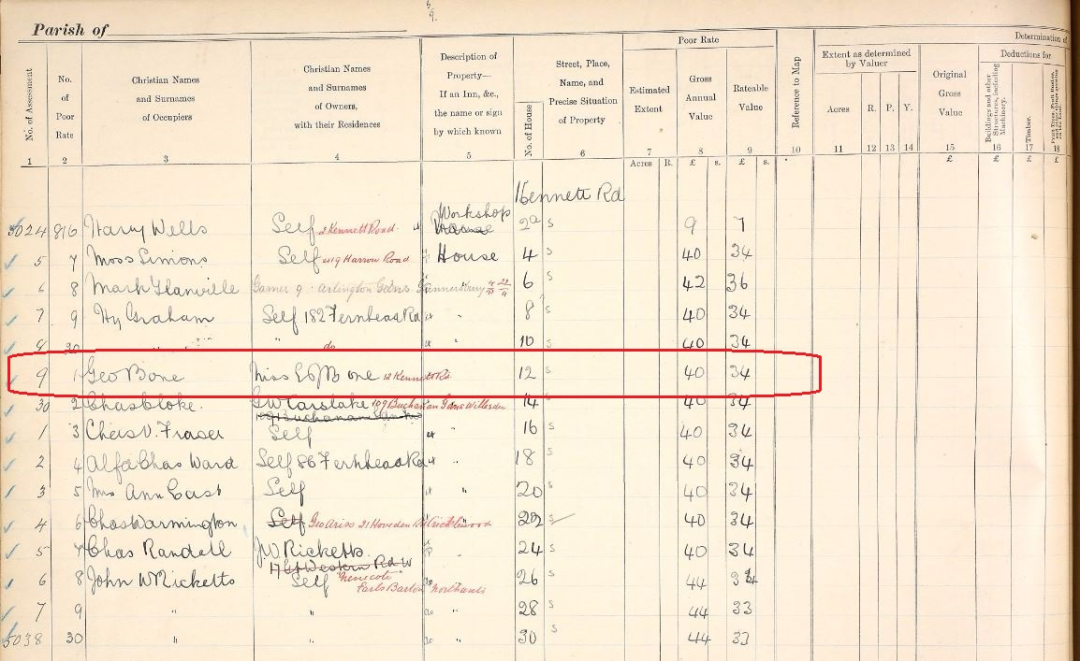 Parish of
Determination of
Poor Rate
Extent as determined by Valuer
Deductions for
No. of Assessment
No. of Poor Rate
Christian Names and Surnames of Occupiers
Christian Names and Surnames of Owners, with their Residences
Description of Property— If an Inn, &c., the name or sign by which known
No. of House
Street, Place, Name, and Precise Situation of Property
Estimated Extent
Gross Annual Value
Rateable Value
Reference to Map
Acres R. P. Y.
Original Gross Value
Buildings and other Structures, including Machinery.
Timber.
1 2 3 4 5 6 7 8 9 10 11 12 13 14 15 16 17 18
Acres R. £ s. £ s. £ £ £ £
Kennett Rd
5024 816 Harry Wells Self 2 Kennett Road Workshop House 2a s 9 7
5 7 Moss Simons Self 419 Harrow Road House 4 s 40 34
6 8 Mark Glanville Arlington Gdns 6 s 42 36
7 9 Hy Graham Self 182 Fernhead Rd 8 s 40 34
8 20 " do 10 s 40 34
9 1 Geo Bone Miss E Bone 12 Kennett Rd. 12 s 40 34
30 2 Chas Cloke. G W Carslake 109 Buchanan Gdns Willesden 14 40 34
1 3 Chas V. Fraser Self " 16 s 40 34
2 4 Alfd Chas Ward Self 86 Fernhead Rd " 18 s 40 34
3 5 Mrs Ann East Self " 20 s 40 34
4 6 Chas Warmington Self Geo Ariss 21 Hoveden Rd Cricklewood 22 s 40 34
5 7 Chas Randell J W Ricketts. " 24 s 40 34
17 St Western Rd W
6 8 John W Ricketts Self Earls Barton Northants 26 s 44 34
7 9 " " " 28 s 44 33
5038 30 " " " 30 s 44 33